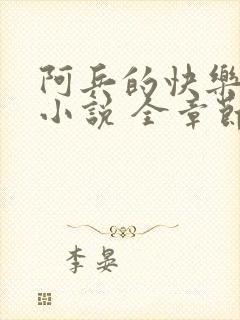 阿兵的快樂
小說 全章節
李晏